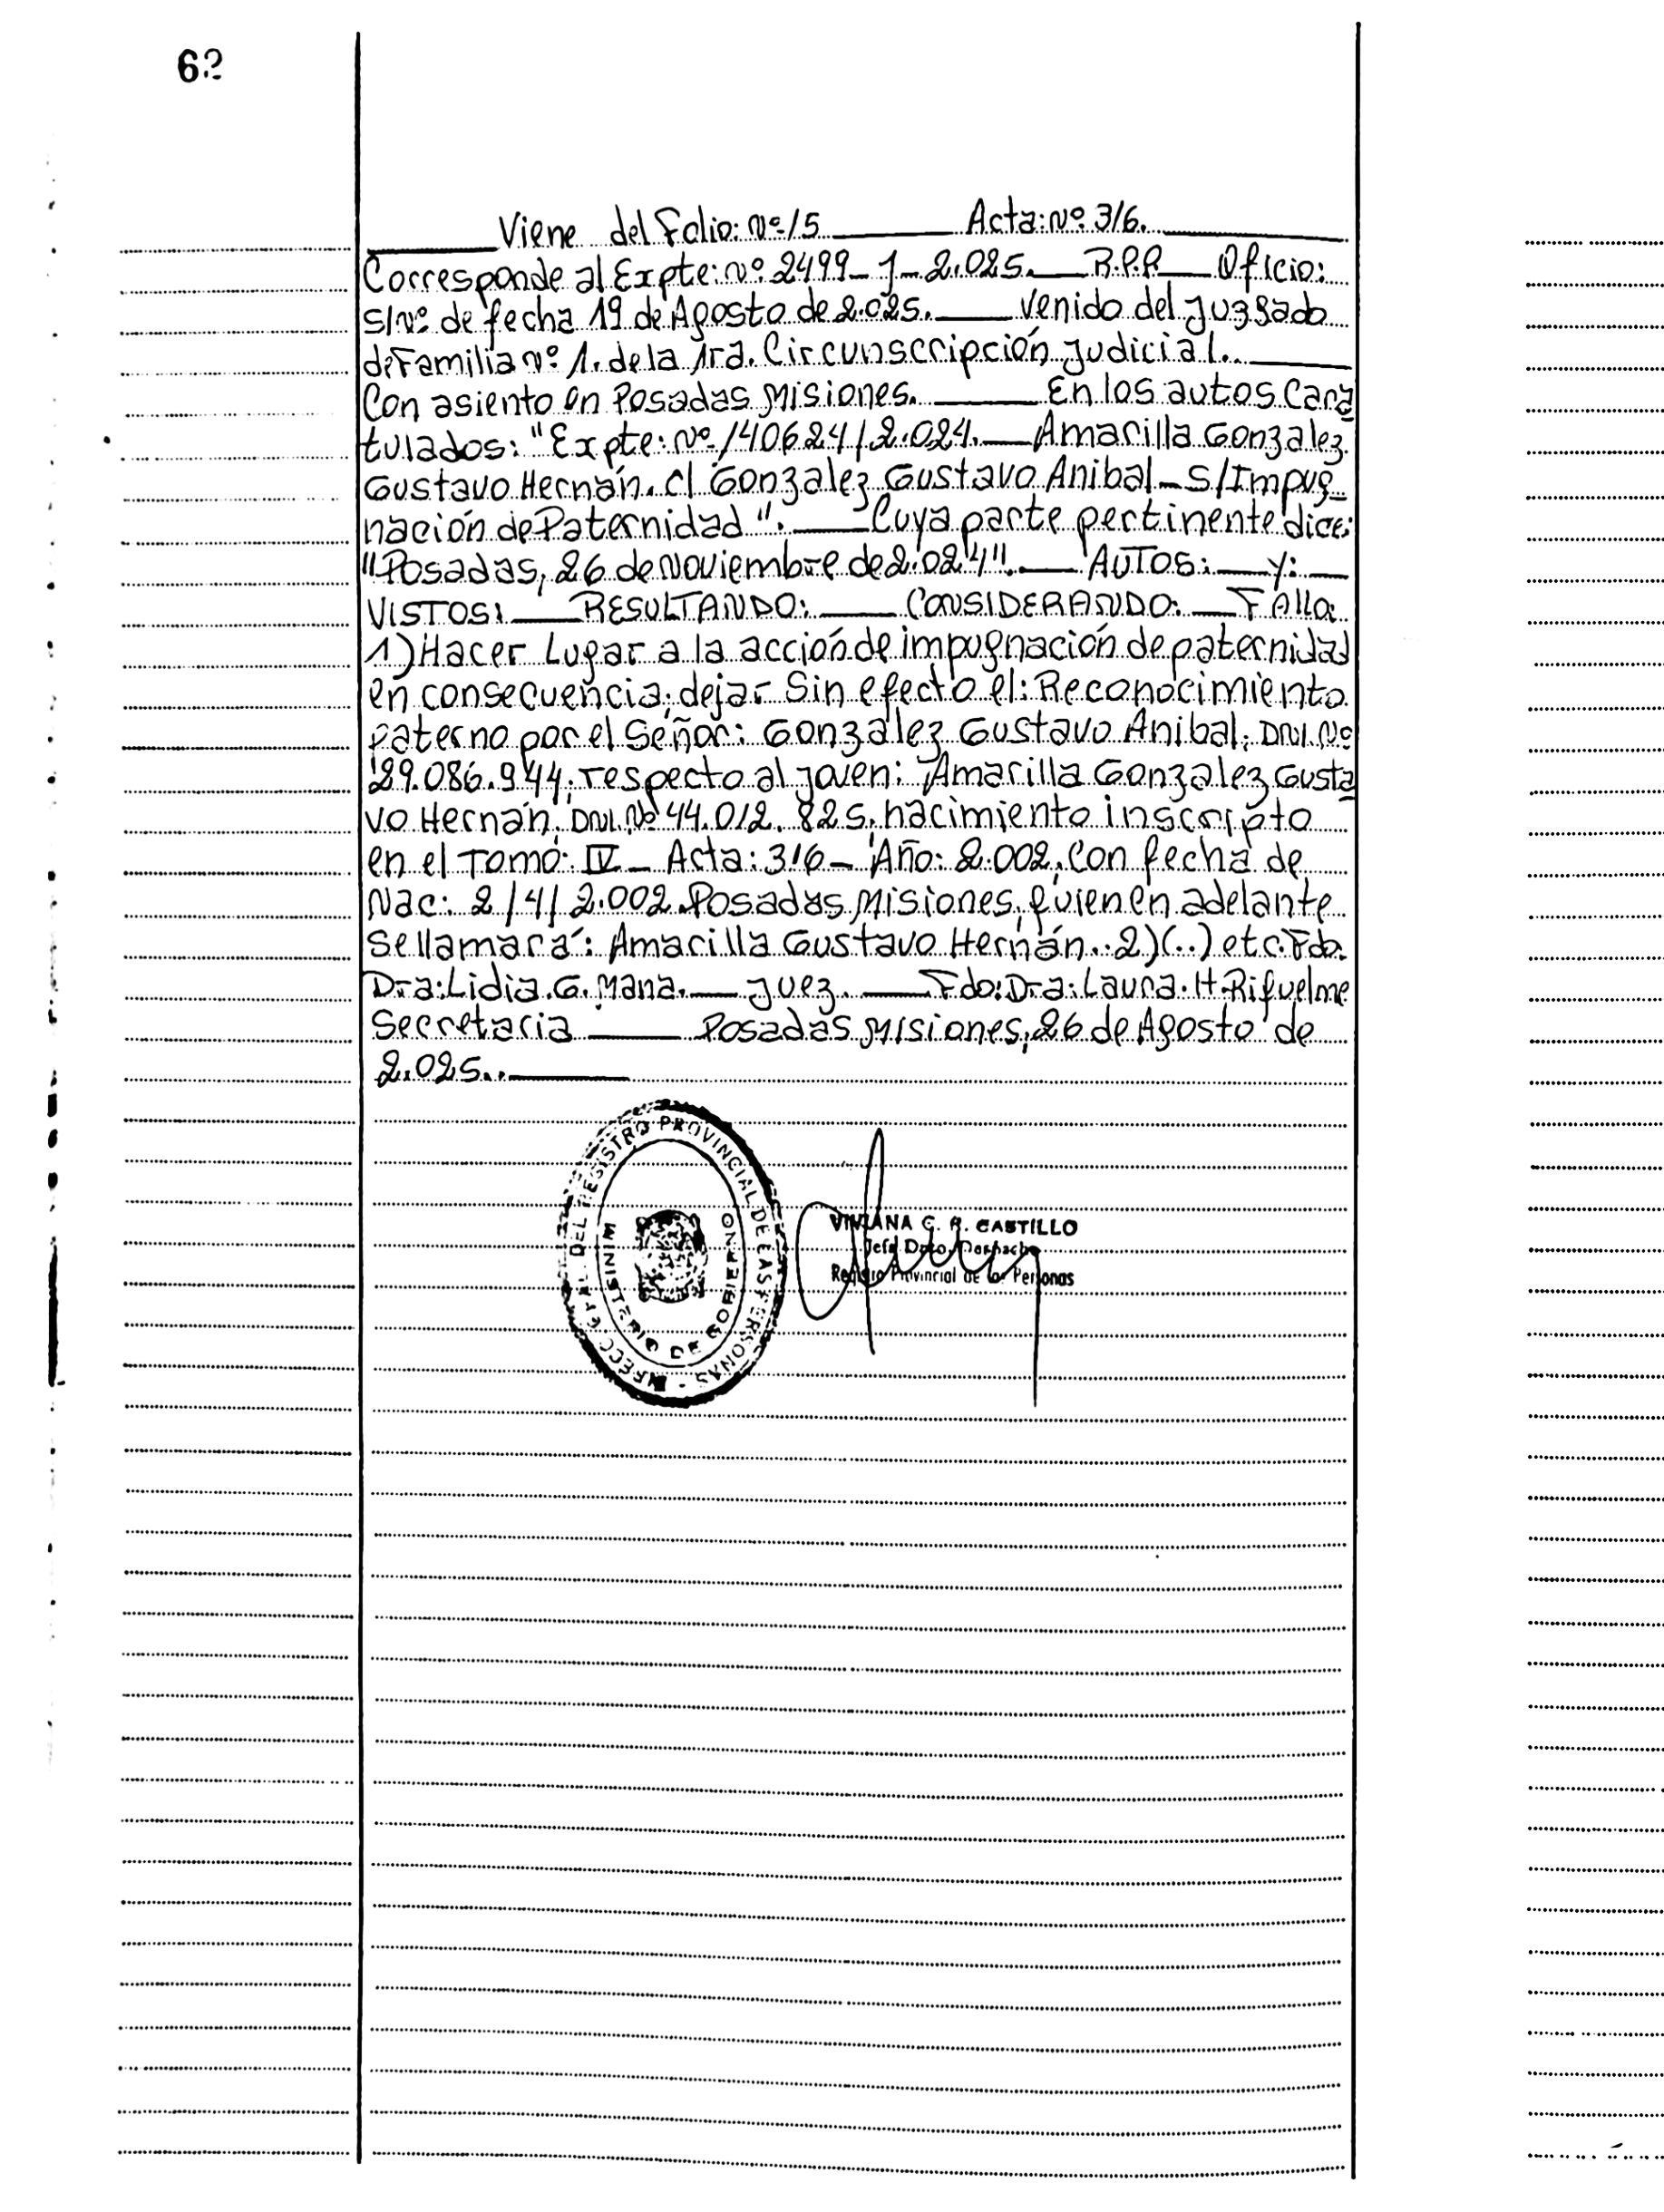 62
Viene del Folio: Nº 15 Acta: Nº 316.
Corresponde al Expte: Nº 2499-J-2.025. R.P.P. Oficio:
S/Nº de fecha 19 de Agosto de 2.025. Venido del Juzgado
de Familia Nº 1. de la 1ra. Circunscripción Judicial.
Con asiento en Posadas Misiones. En los autos Cara
tulados: "Expte: Nº 140624/2.024. Amarilla Gonzalez
Gustavo Hernán. C/ Gonzalez Gustavo Anibal - S/Impug-
nación de Paternidad". Cuya parte pertinente dice:
"Posadas, 26 de Noviembre de 2.024". AUTOS: Y:
VISTOS: RESULTANDO: CONSIDERANDO: FAllo:
1) Hacer Lugar a la acción de impugnación de paternidad
en consecuencia; dejar Sin efecto el: Reconocimiento
paterno por el Señor: Gonzalez Gustavo Anibal; DNI. Nº
29.086.944; respecto al joven: Amarilla Gonzalez Gusta
vo Hernán; DNI. Nº 44.012.825, nacimiento inscripto
en el Tomo: IV - Acta: 316 - Año: 2.002, Con fecha de
Nac: 2/4/2.002. Posadas Misiones, quien en adelante
Se llamará: Amarilla Gustavo Hernán.. 2)(..) etc. Fdo.
Dra: Lidia. G. Mana. Juez. Fdo: Dra: Laura. H. Riquelme
Secretaria Posadas Misiones, 26 de Agosto de
2.025..
DEL REGISTRO PROVINCIAL DE LAS PERSONAS
MINISTERIO DE GOBIERNO
VIVIANA C. R. CASTILLO
Jefa Dpto. Despacho
Registro Provincial de las Personas